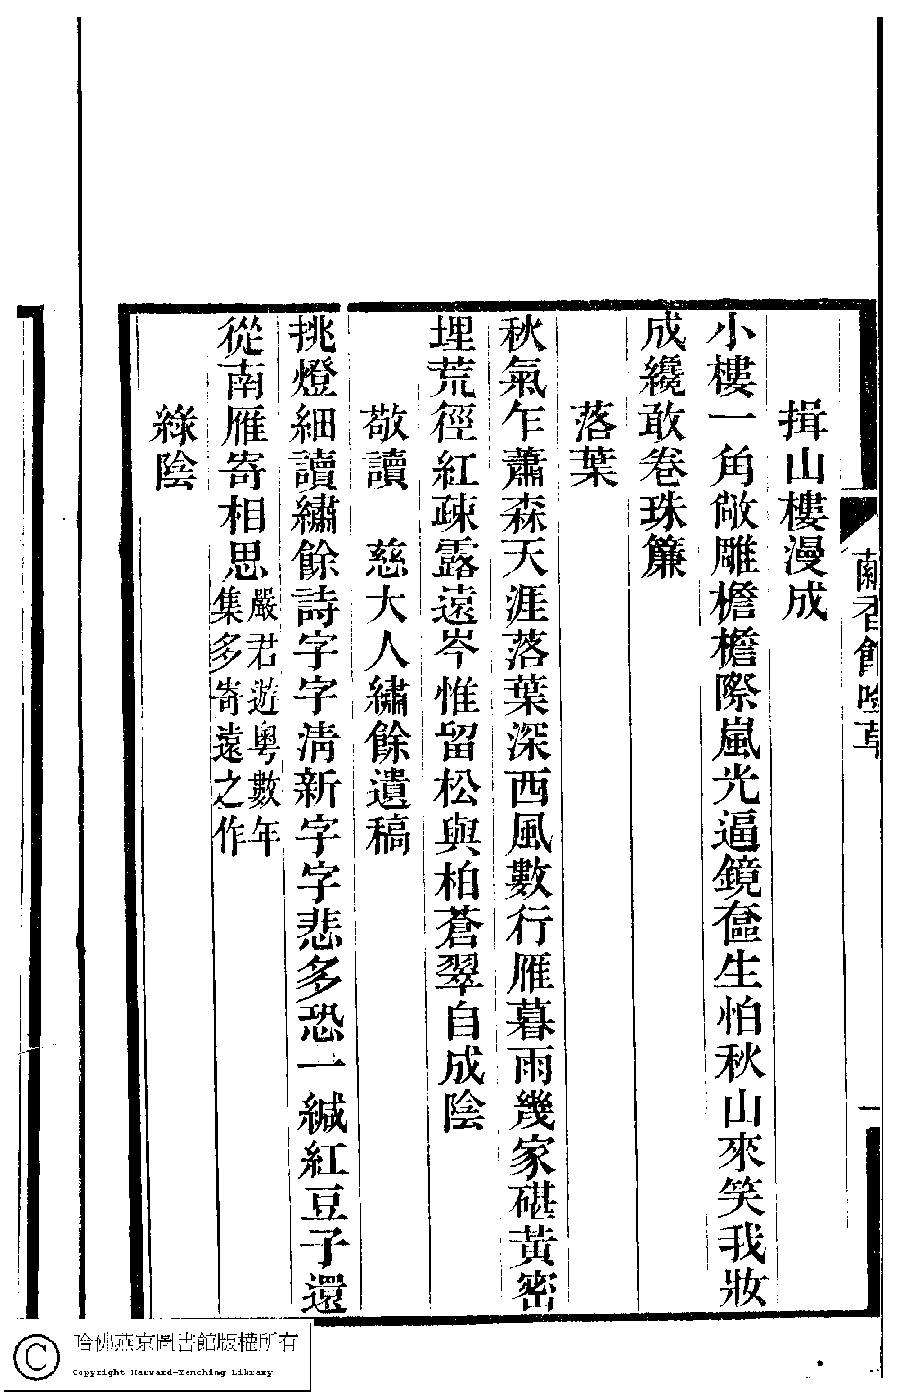 蘭香館吟草
一
揖山樓漫成
小樓一角敞雕檐檐際嵐光逼鏡奩生怕秋山來笑我妝
成纔敢卷珠簾
落葉
秋氣乍蕭森天涯落葉深西風數行雁暮雨幾家碪黃密
埋荒徑紅疎露遠岑惟留松與柏蒼翠自成陰
敬讀 慈大人繡餘遺稿
挑燈細讀繡餘詩字字淸新字字悲多恐一緘紅豆子還
從南雁寄相思嚴君遊粵數年
集多寄遠之作
綠陰
哈佛燕京圖書館版權所有
Copyright Harvard-Yenching Library